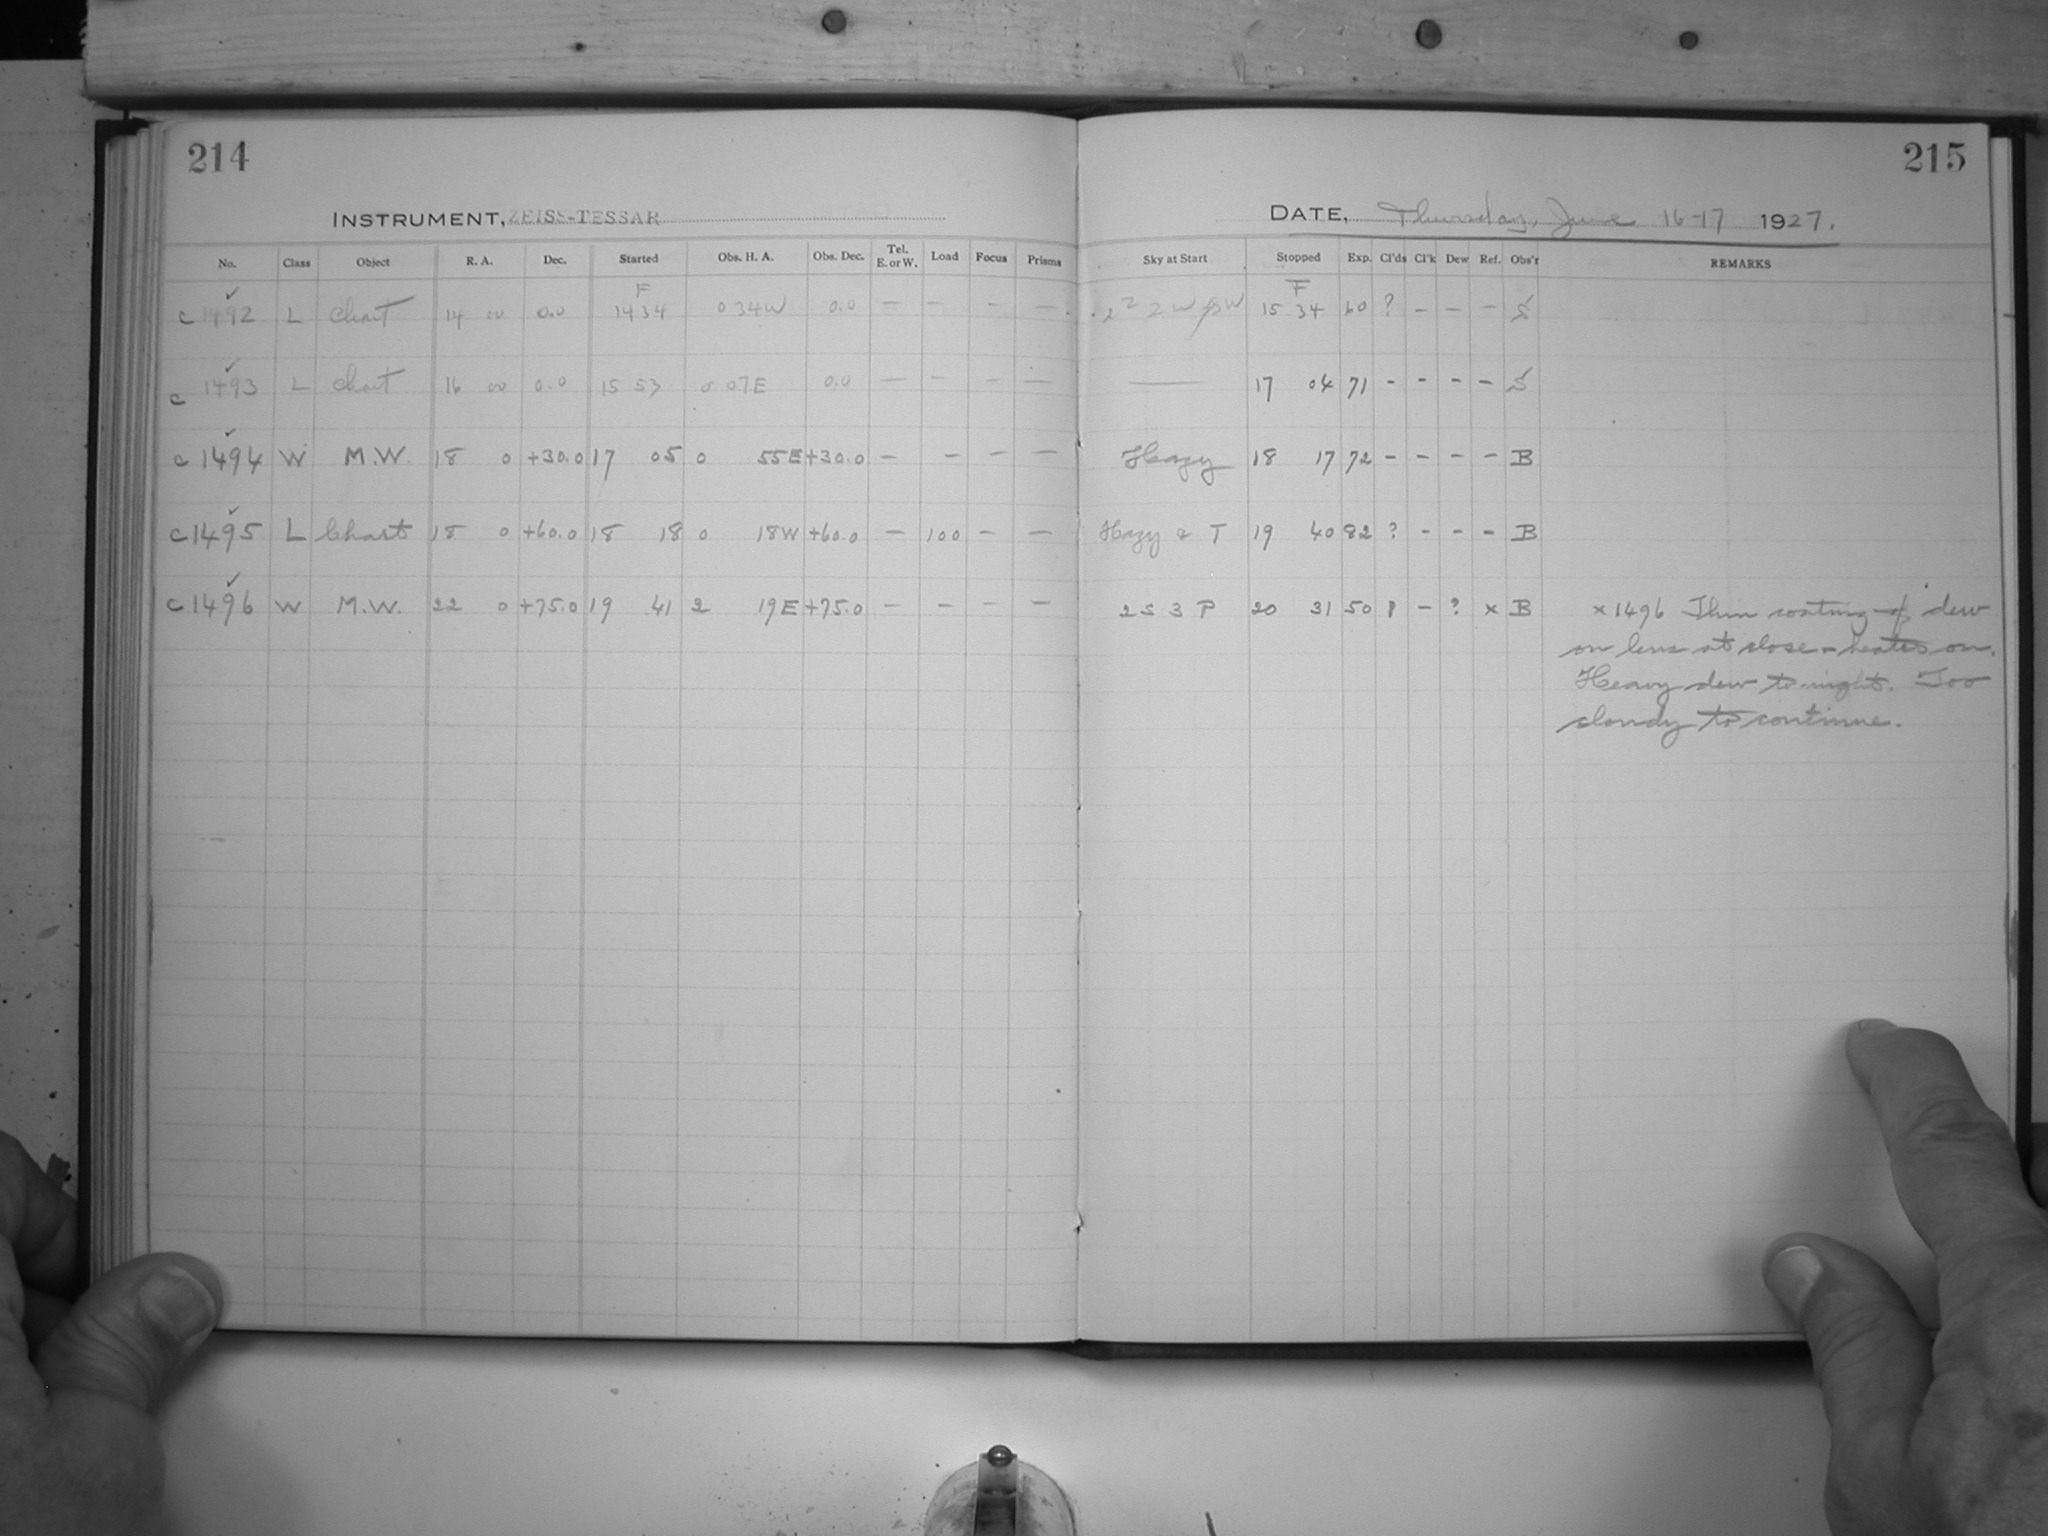 214
215
INSTRUMENT, ZEISS-TESSAR
DATE, Thursday, June 16-17 1927.
No. Class Object R. A. Dec. Started Obs. H. A. Obs. Dec. Tel. E. or W. Load Focus Prisms Sky at Start Stopped Exp. Cl'ds Cl'k Dew Ref. Obs'r REMARKS
F F
c 1492 ✓ L Chart 14 00 0.0 14 34 0 34W 0.0 — — — — 15 34 60 ? – – – S
c 1493 ✓ L Chart 16 00 0.0 15 53 0 07E 0.0 — — — — — 17 04 71 – – – – S
c 1494 ✓ W M.W. 18 0 +30.0 17 05 0 55E +30.0 — — — — Heazy 18 17 72 – – – – B
c 1495 ✓ L Chart 18 0 +60.0 18 18 0 18W +60.0 — 100 — — Hazy & T 19 40 82 ? – – – B
c 1496 ✓ W M.W. 22 0 +75.0 19 41 2 19E +75.0 — — — — 2 S 3 P 20 31 50 – ? x B x 1496 Thin coating of dew
on lens at close - heater on.
Heavy dew to-night. Too
cloudy to continue.